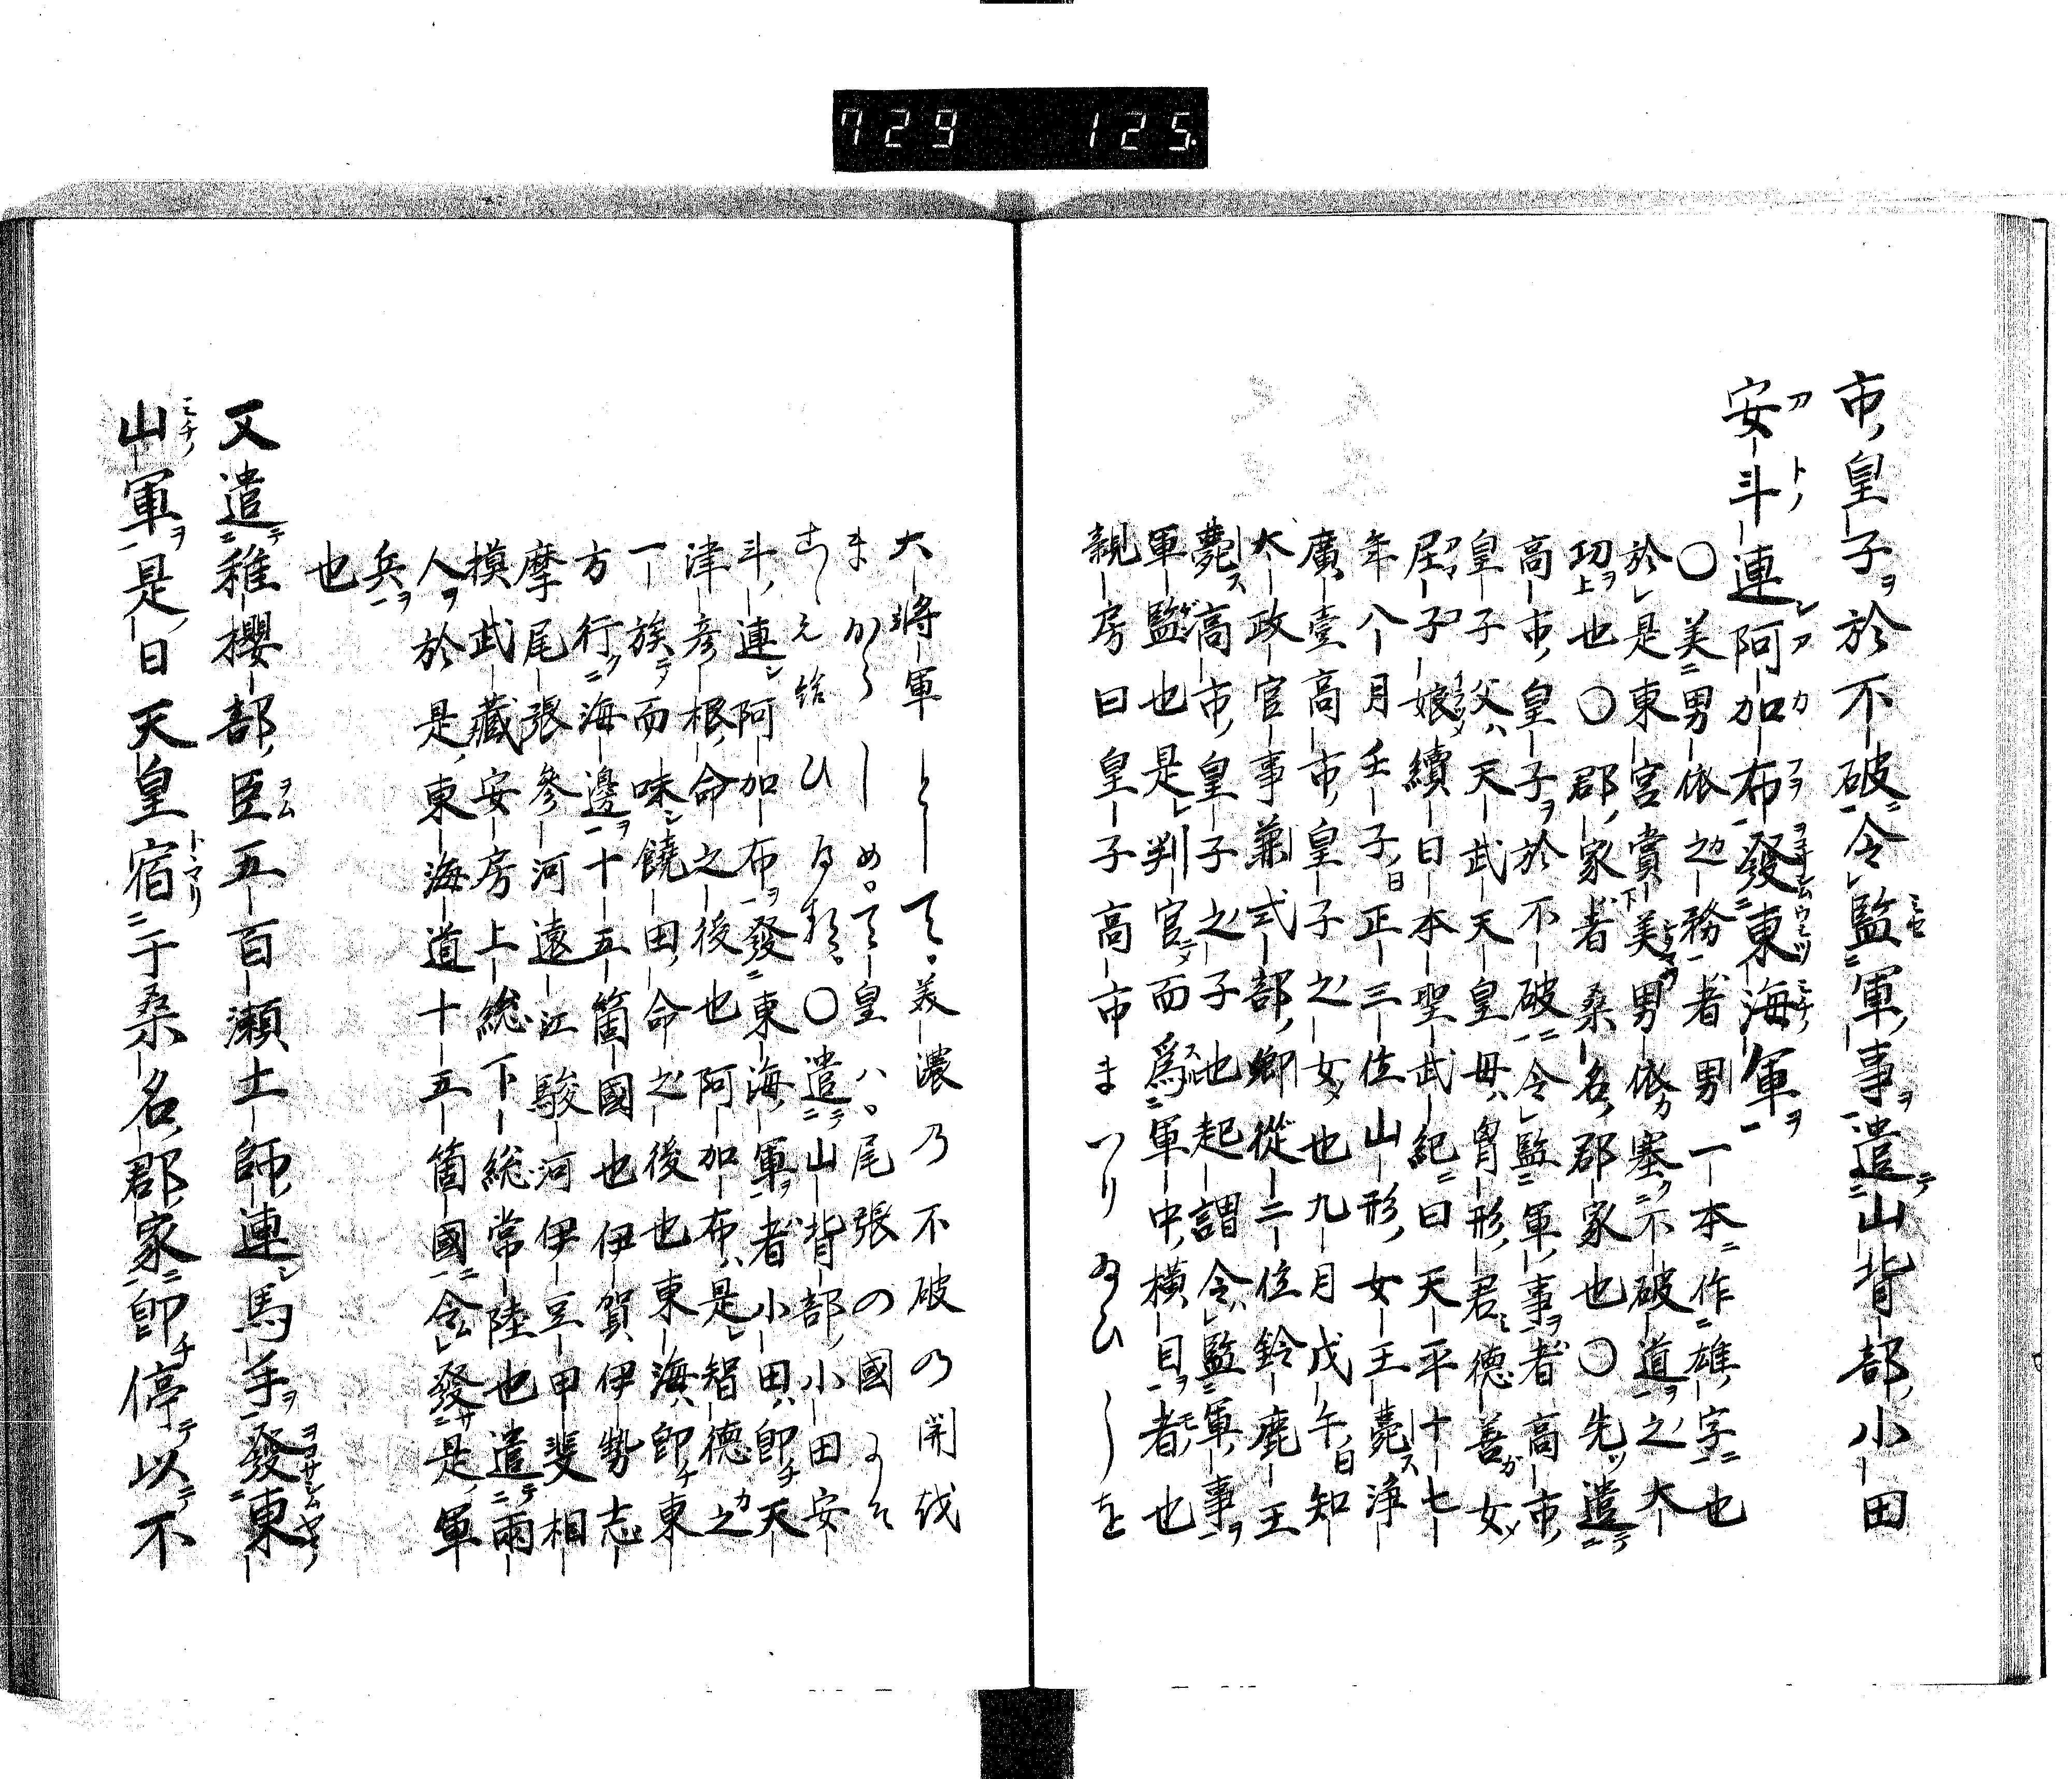 729 125
市皇子於不破令監軍事遣山背部小田
安斗連阿加布發東海軍
〇美男依之務者男一本作雄字也
於是東宮賞美男依塞不破道之大
功也〇郡家者桑名郡家也〇先遣
高市皇子於不破令監軍事者高市
皇子父天武天皇母胷形君德善女
屋子娘續日本聖武紀曰天平十七
年八月壬子日正三位山形女王薨淨
廣壹高市皇子之女也九月戊午日知
大政官事兼式部卿從二位鈴鹿王
薨高市皇子之子也起謂令監軍事
軍監也是判官而爲軍中橫目者也
親房曰皇子高市まつり給ひしを
大將軍としてて美濃乃不破の関
まからしめて皇ハ尾張の國
こえ給ひ〇遣山背部小田安
斗連阿加布發東海軍者小田卽天
津彥根命之後也阿加布是智德之
一族而味饒田命之後也東海卽東
方行海邊十五箇國也伊賀伊勢志
摩尾張參河遠江駿河伊豆甲斐相
模武藏安房上総下総常陸也遣兩
人於是東海道十五箇國令發是軍
兵也
又遣稚櫻部臣五百瀬土師連馬手發東
山軍是日天皇宿于桑名郡家卽停以不